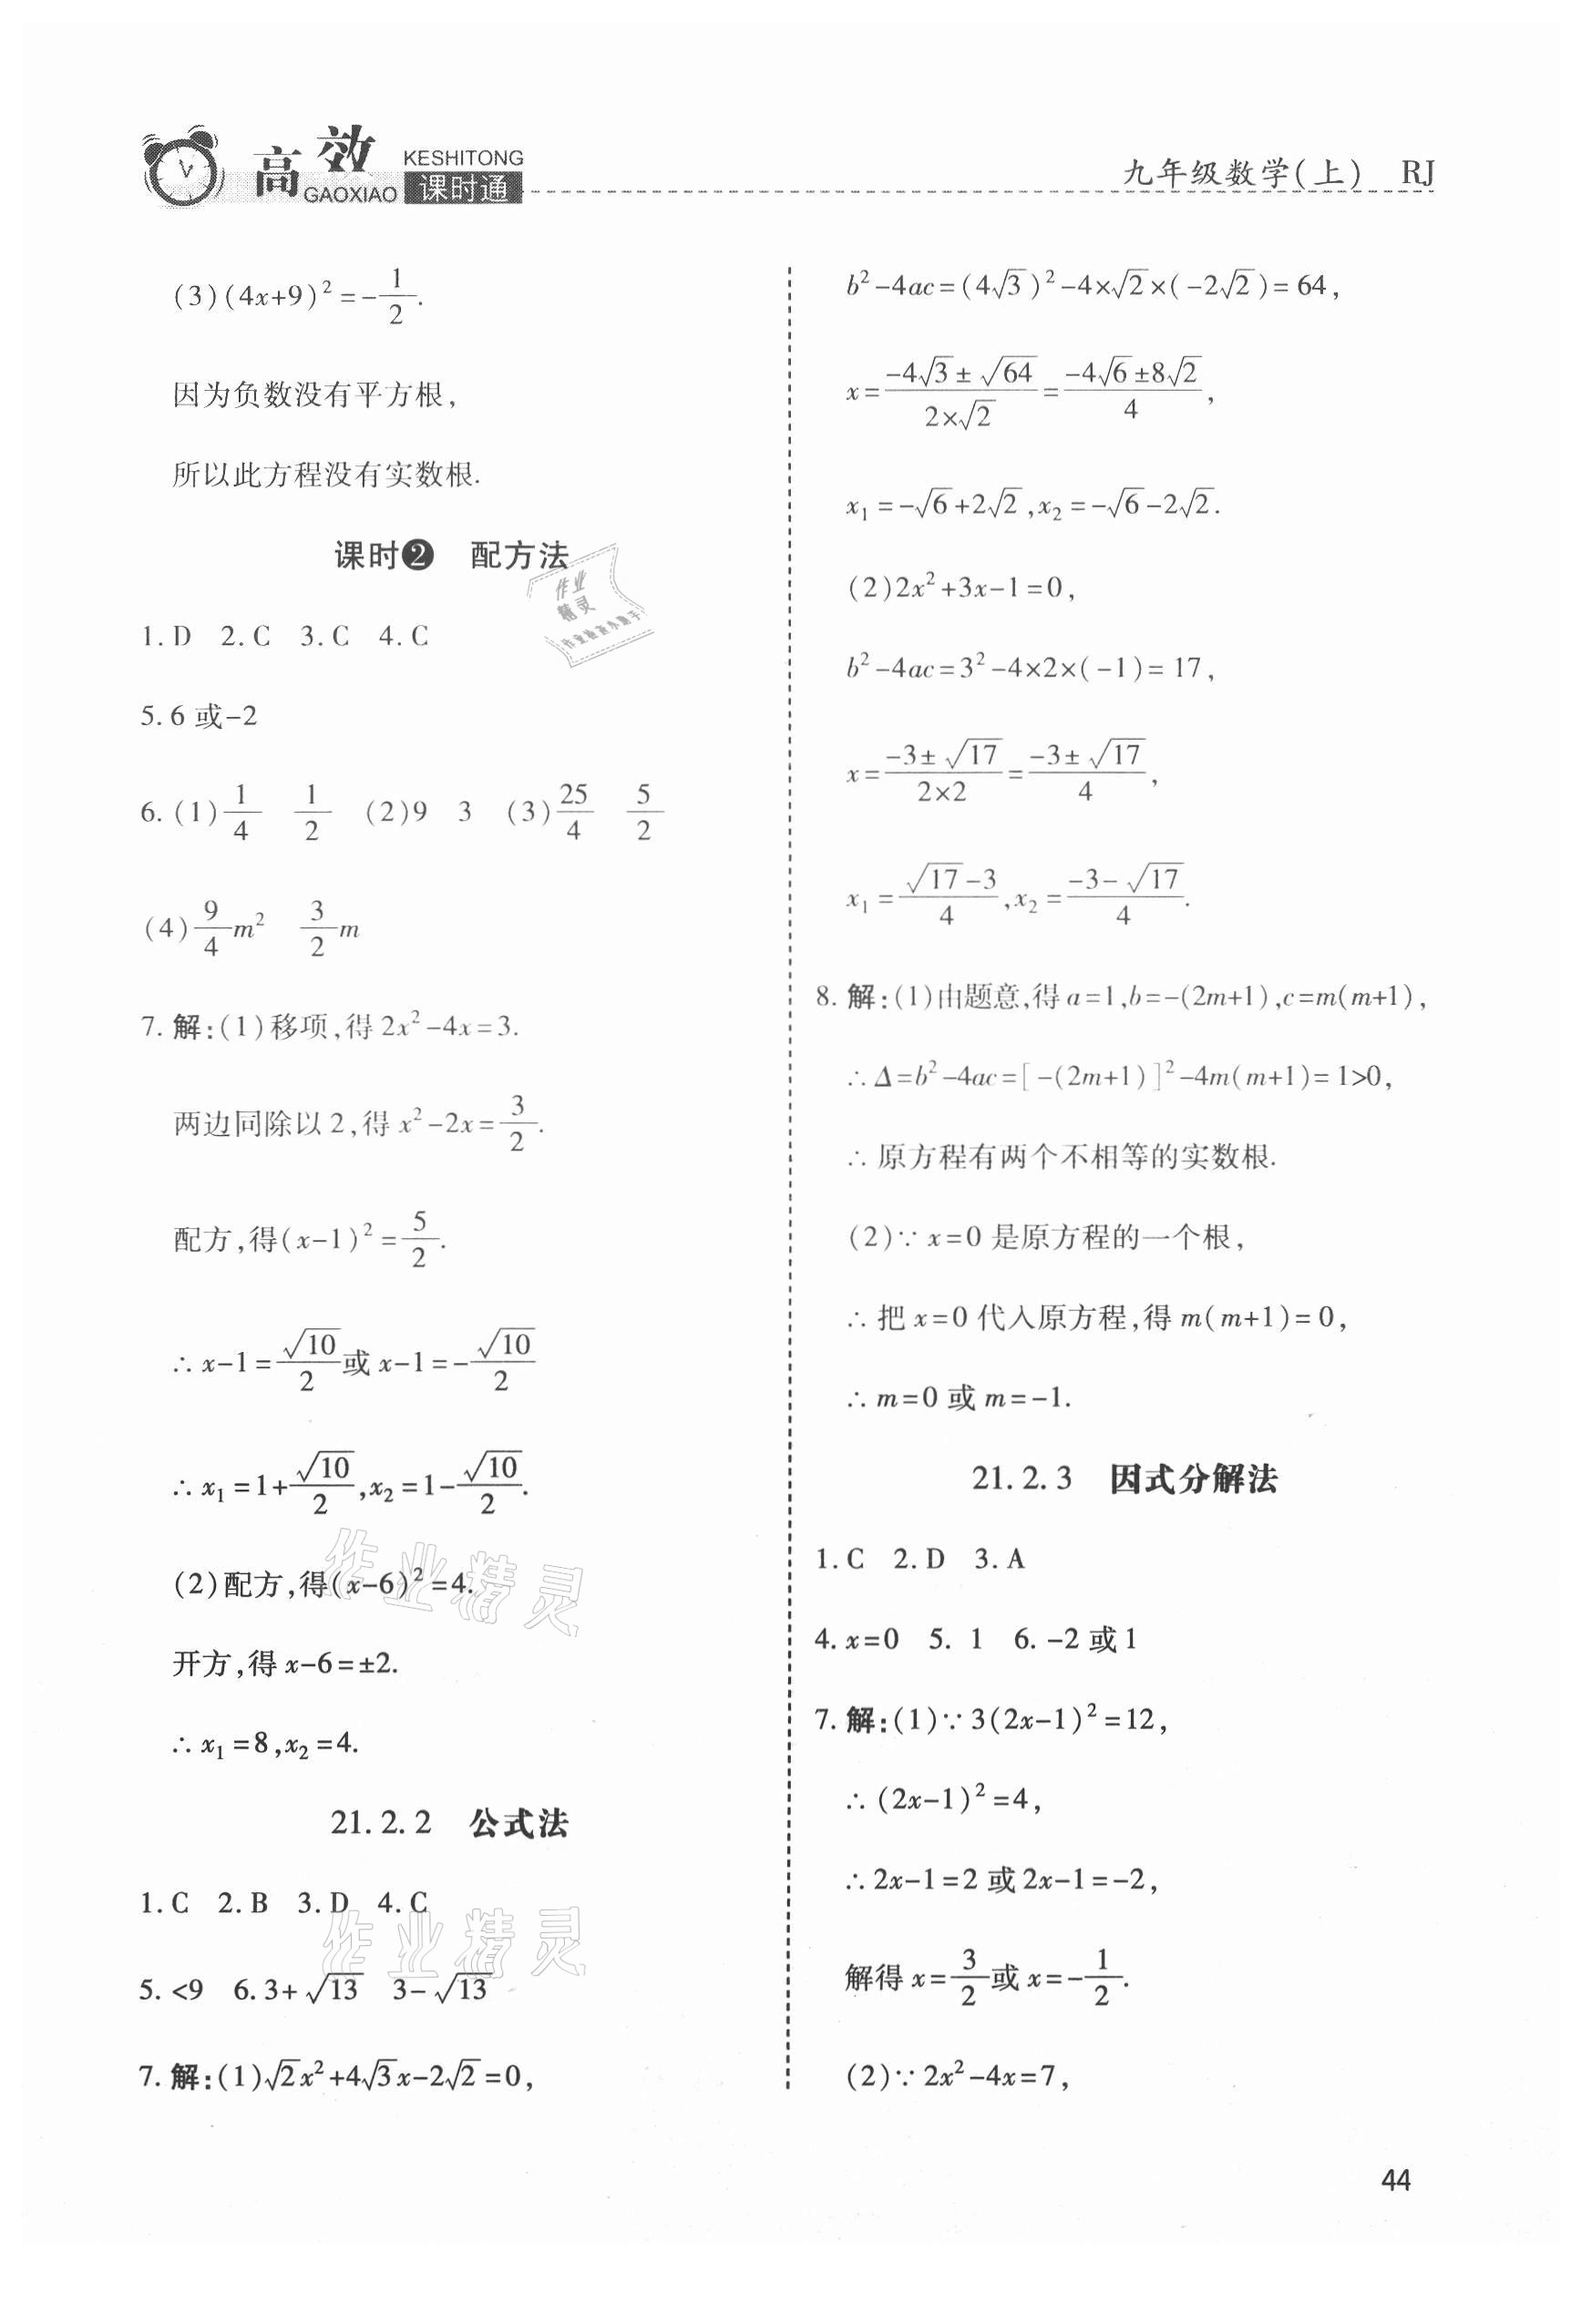 高效 KESHITONG
GAOXIAO 课时通
九年级数学(上) RJ
(3)(4x+9)²=-1/2.
因为负数没有平方根,
所以此方程没有实数根.
课时❷ 配方法
作业
精灵
1. D 2. C 3. C 4. C
5. 6 或-2
6. (1)1/4 1/2 (2)9 3 (3)25/4 5/2
(4)9/4m² 3/2m
7. 解:(1)移项,得 2x²-4x=3.
两边同除以 2,得 x²-2x=3/2.
配方,得(x-1)²=5/2.
∴ x-1=√10/2或 x-1=-√10/2
∴ x₁=1+√10/2,x₂=1-√10/2.
(2)配方,得(x-6)²=4.
开方,得 x-6=±2.
∴ x₁=8,x₂=4.
作业精灵
21. 2. 2 公式法
1. C 2. B 3. D 4. C
5. <9 6. 3+√13 3-√13
作业精灵
7. 解:(1)√2x²+4√3x-2√2=0,
b²-4ac=(4√3)²-4×√2×(-2√2)=64,
x=(-4√3±√64)/(2×√2)=(-4√6±8√2)/4,
x₁=-√6+2√2,x₂=-√6-2√2.
(2)2x²+3x-1=0,
b²-4ac=3²-4×2×(-1)=17,
x=(-3±√17)/(2×2)=(-3±√17)/4,
x₁=(√17-3)/4,x₂=(-3-√17)/4.
8. 解:(1)由题意,得 a=1,b=-(2m+1),c=m(m+1),
∴ Δ=b²-4ac=[-(2m+1)]²-4m(m+1)=1>0,
∴ 原方程有两个不相等的实数根.
(2)∵ x=0 是原方程的一个根,
∴ 把 x=0 代入原方程,得 m(m+1)=0,
∴ m=0 或 m=-1.
21. 2. 3 因式分解法
1. C 2. D 3. A
4. x=0 5. 1 6. -2 或 1
7. 解:(1)∵ 3(2x-1)²=12,
∴ (2x-1)²=4,
∴ 2x-1=2 或 2x-1=-2,
解得 x=3/2或 x=-1/2.
(2)∵ 2x²-4x=7,
44